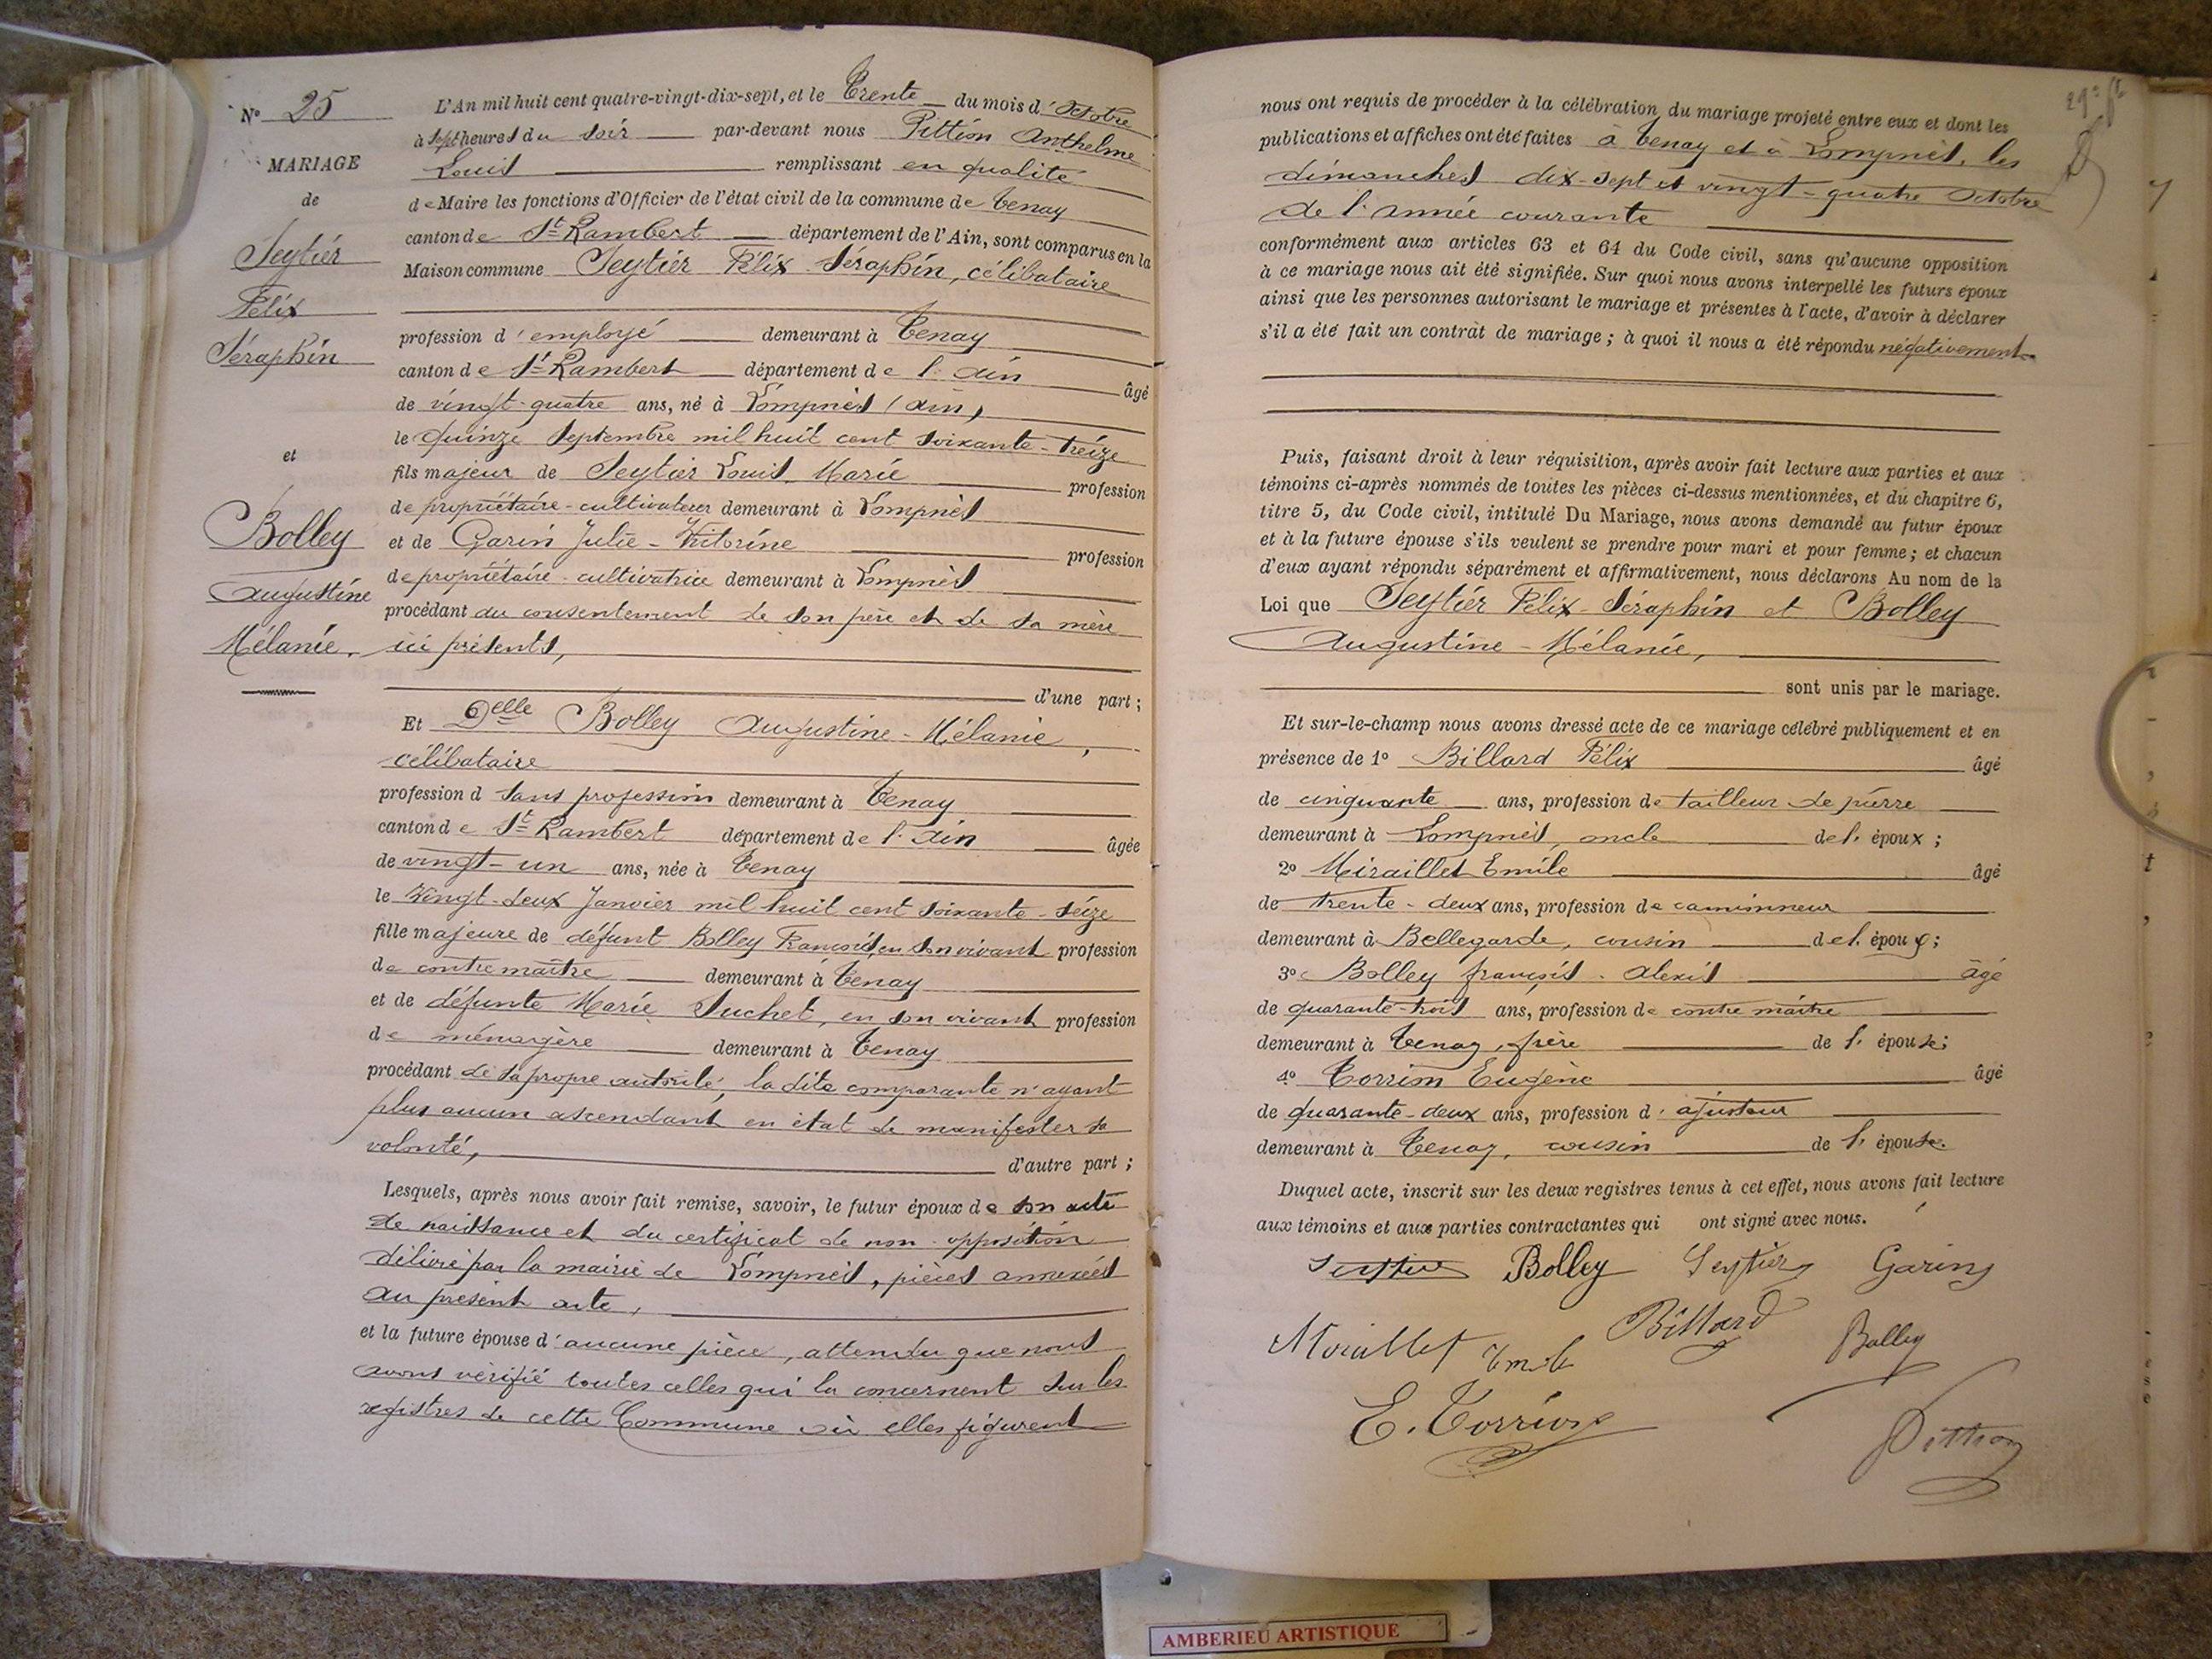 N° 25
MARIAGE
de
Seytier
Félix
Séraphin
et
Bolley
Augustine
Mélanie.
L'An mil huit cent quatre-vingt-dix-sept, et le Trente du mois d'Octobre
à sept heures du soir par-devant nous Pittion Anthelme
Louis remplissant en qualité
de Maire les fonctions d'Officier de l'état civil de la commune de Tenay
canton de St Rambert département de l'Ain, sont comparus en la
Maison commune Seytier Félix Séraphin, célibataire
profession d'employé demeurant à Tenay
canton de St Rambert département de l'Ain âgé
de vingt-quatre ans, né à Lompnès (Ain),
le quinze Septembre mil huit cent soixante-treize
fils majeur de Seytier Louis Marie profession
de propriétaire-cultivateur demeurant à Lompnès
et de Garin Julie-Vitorine profession
de propriétaire-cultivatrice demeurant à Lompnès
procédant du consentement de son père et de sa mère
ici présents,
d'une part ;
Et Delle Bolley Augustine-Mélanie,
célibataire
profession d sans profession demeurant à Tenay
canton de St Rambert département de l'Ain âgée
de vingt-un ans, née à Tenay
le Vingt-deux Janvier mil huit cent soixante-seize
fille majeure de défunt Bolley François, en son vivant profession
de contre maître demeurant à Tenay
et de défunte Marie Suchet, en son vivant profession
de ménagère demeurant à Tenay
procédant de sa propre autorité, la dite comparante n'ayant
plus aucun ascendant en état de manifester sa
volonté, d'autre part ;
Lesquels, après nous avoir fait remise, savoir, le futur époux de son acte
de naissance et du certificat de non-opposition
délivré par la mairie de Lompnès, pièces annexées
au présent acte,
et la future épouse d'aucune pièce, attendu que nous
avons vérifié toutes celles qui la concernent sur les
registres de cette Commune où elles figurent
nous ont requis de procéder à la célébration du mariage projeté entre eux et dont les
publications et affiches ont été faites à Tenay et à Lompnès, les
dimanches dix-sept et vingt-quatre Octobre
de l'année courante
conformément aux articles 63 et 64 du Code civil, sans qu'aucune opposition
à ce mariage nous ait été signifiée. Sur quoi nous avons interpellé les futurs époux
ainsi que les personnes autorisant le mariage et présentes à l'acte, d'avoir à déclarer
s'il a été fait un contrat de mariage ; à quoi il nous a été répondu négativement
Puis, faisant droit à leur réquisition, après avoir fait lecture aux parties et aux
témoins ci-après nommés de toutes les pièces ci-dessus mentionnées, et du chapitre 6,
titre 5, du Code civil, intitulé Du Mariage, nous avons demandé au futur époux
et à la future épouse s'ils veulent se prendre pour mari et pour femme ; et chacun
d'eux ayant répondu séparément et affirmativement, nous déclarons Au nom de la
Loi que Seytier Félix-Séraphin et Bolley
Augustine-Mélanie,
sont unis par le mariage.
Et sur-le-champ nous avons dressé acte de ce mariage célébré publiquement et en
présence de 1° Billard Félix âgé
de cinquante ans, profession de tailleur de pierre
demeurant à Lompnès, oncle de l'époux ;
2° Miraillet Emile âgé
de trente-deux ans, profession de camionneur
demeurant à Bellegarde, cousin de l'époux ;
3° Bolley françois-Alexis âgé
de quarante-trois ans, profession de contre maître
demeurant à Tenay, frère de l'épouse ;
4° Torrion Eugène âgé
de quarante-deux ans, profession d'ajusteur
demeurant à Tenay, cousin de l'épouse.
Duquel acte, inscrit sur les deux registres tenus à cet effet, nous avons fait lecture
aux témoins et aux parties contractantes qui ont signé avec nous.
Seytier Bolley Seytier Garin
Miraillet Emile Billard Bolley
E. Torrion
Pittion
AMBERIEU ARTISTIQUE